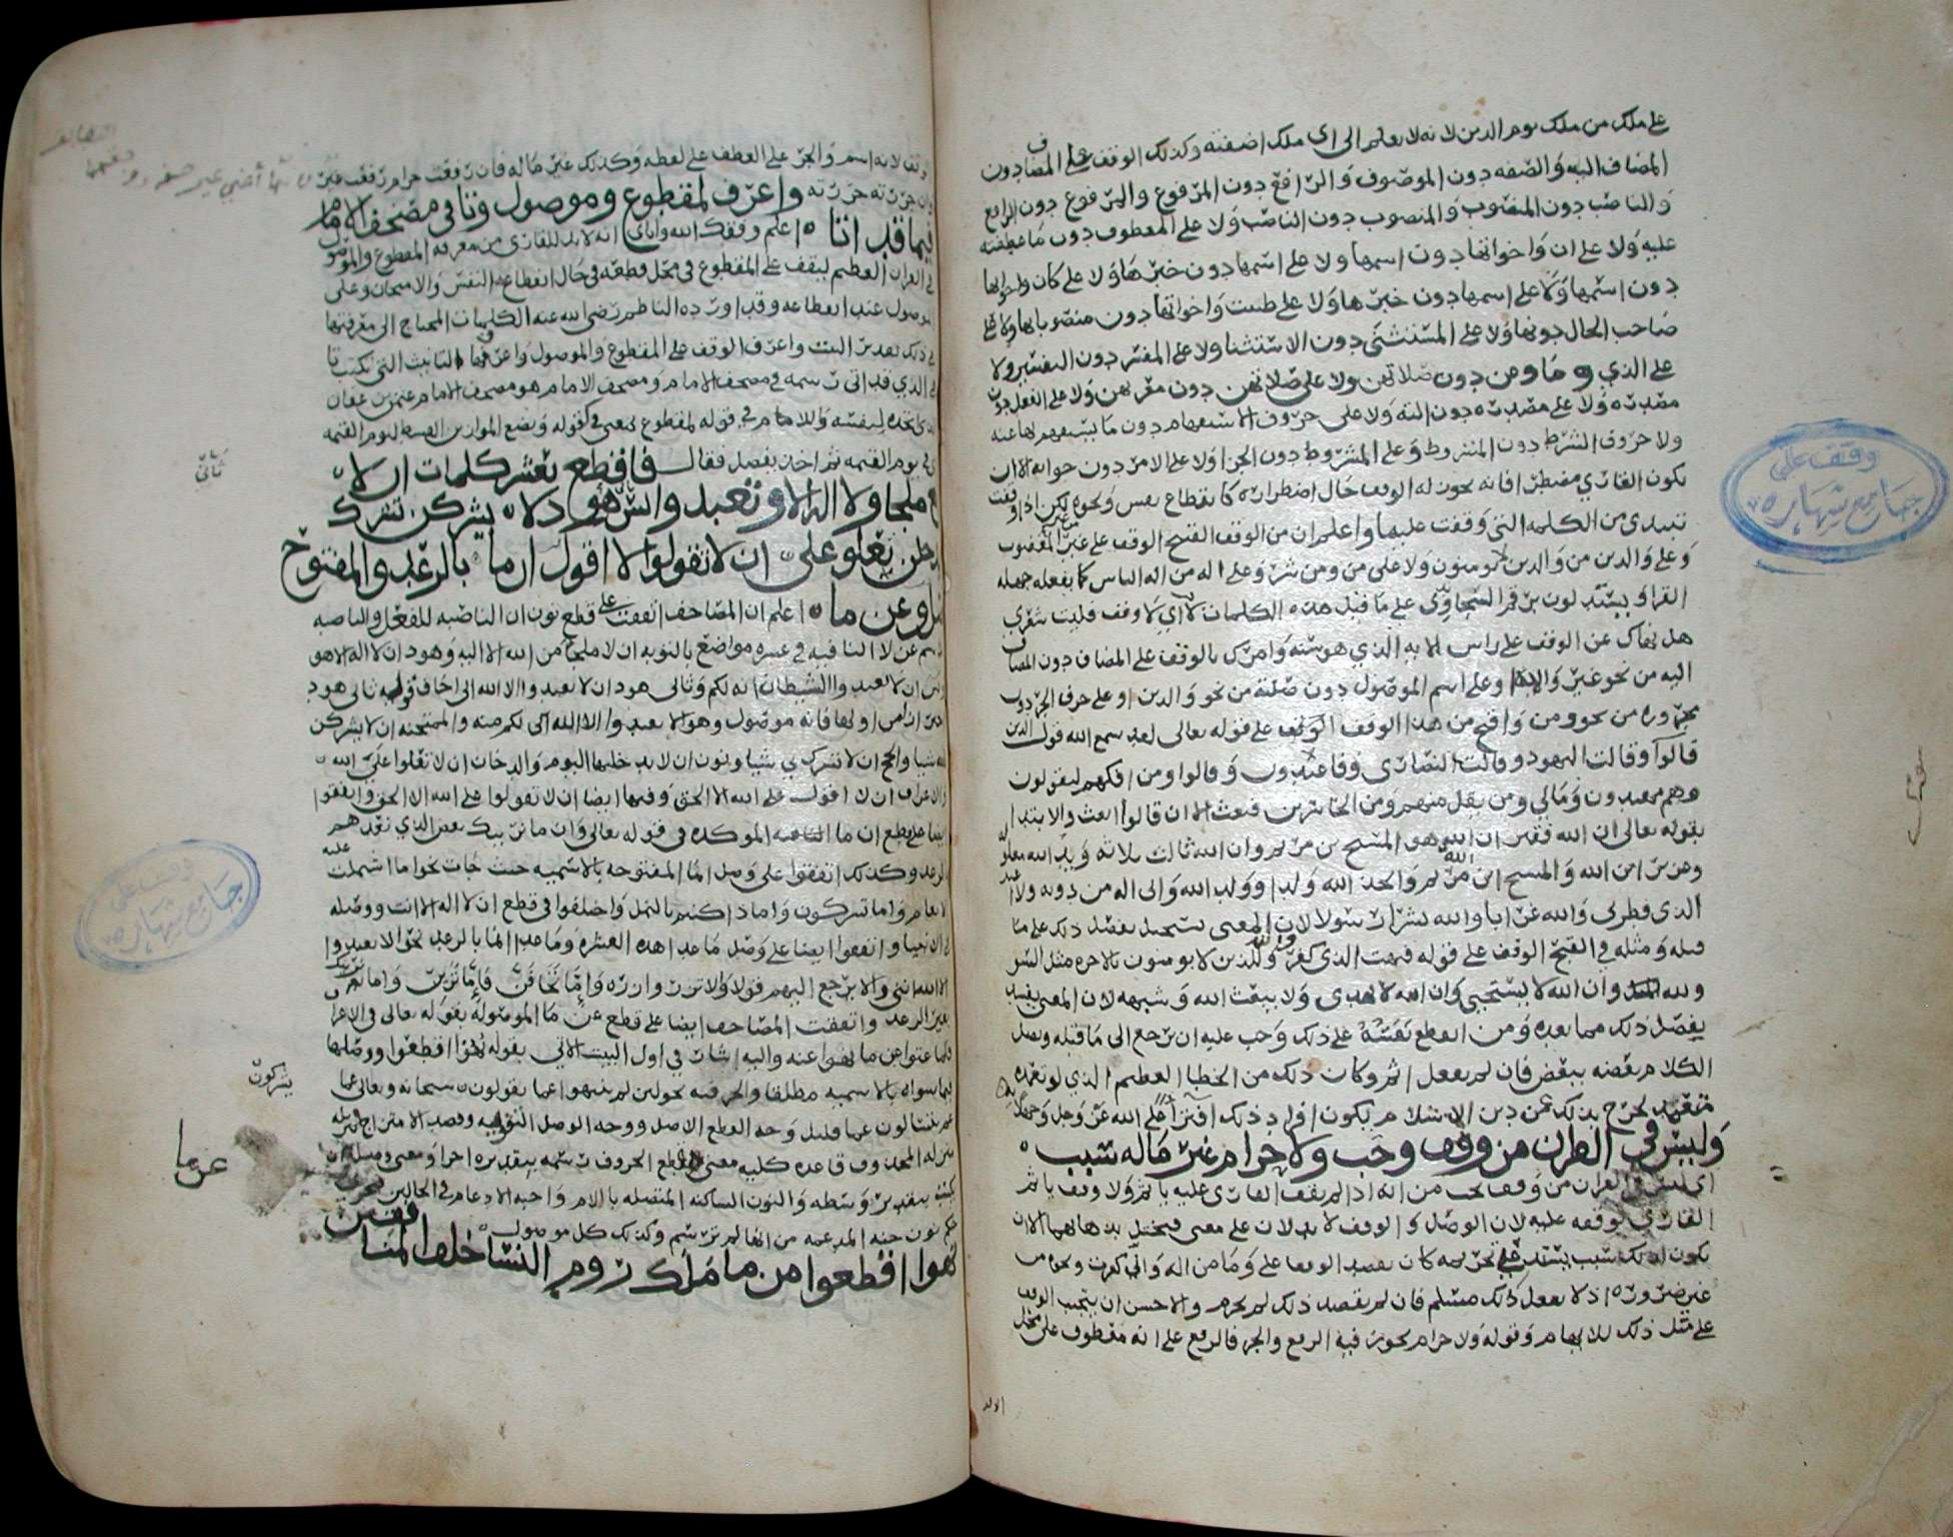 على ملك من ملك يوم الدين لانه لا يعلم الى اى ملك اضفته وكذلك الوقف على المضاف دون
المضاف اليه والصفه دون الموصوف والرافع دون المرفوع والمرفوع دون الرافع
والناصب دون المنصوب والمنصوب دون الناصب ولا على المعطوف دون ما عطفته
عليه ولا على ان واخواتها دون اسمها ولا على اسمها دون خبرها ولا على كان واخواتها
دون اسمها ولا على اسمها دون خبرها ولا على ظننت واخواتها دون منصوباتها ولا على
صاحب الحال دونها ولا على المستثنى دون الاستثنا ولا على المفسر دون التفسير ولا
على الذي وما ومن دون صلاتهن ولا على صلاتهن دون معربهن ولا على الفعل دون
مصدره ولا على مصدره دون الته ولا على حروف الاستفهام دون ما يستفهم بها عنه
ولا حروف الشرط دون المشروط وعلى المشروط دون الجزا ولا على الامر دون جوابه الا ان
يكون القارى مضطرا فانه يجوز له الوقف حال اضطراره كانقطاع نفس ونحوه لكن اذا وقفت
تبتدى من الكلمه التي وقفت عليها واعلم ان من الوقف القبيح الوقف على غير المغضوب
وعلى والذين من والذين يومنون ولا على من ومن شر وعلى اله من اله الناس كما يفعله جهله
القرا
هل نهاك عن الوقف على راس الايه الذي هو سنه وامرك بالوقف على المضاف دون المضاف
اليه من نحو غير واله وعلى اسم الموصول دون صلته من نحو والذين او على حرف الجر دون
مجروره من نحو ومن واقبح من هذا الوقف الوقف على قوله تعالى لقد سمع الله قول الذين
قالوا وقالت اليهود وقالت النصارى وفاعبدون وقالوا ومن افكهم ليقولون
وهم مهتدون ومالي ومن يقل منهم ومن الخاسرين فبعث الا ان قالوا ابعث والابتدا
بقوله تعالى ان الله فقير ان الله هو المسيح بن مريم وان الله ثالث ثلاثه ويد الله مغلوله
وعزير ابن الله والمسيح ابن الله واتخذ الله ولدا وولد الله وانى اله من دونه ولا اعبد
الذي فطرني والله غرابا والله بشرا رسولا لان المعنى يستحيل بفصل ذلك على ما
قبله ومثله في القبح الوقف على قوله فبهت الذي كفر والله وللذين لا يومنون بالاخره مثل السو
ولله وان الله لا يستحيي وان الله لا يهدى ولا يبعث الله وشبهه لان المعنى يفسد
بفصل ذلك مما بعده ومن انقطع نفسه على ذلك وجب عليه ان يرجع الى ما قبله ويصل
الكلام بعضه ببعض فان لم يفعل اثم وكان ذلك من الخطا العظيم الذي لو تعمده
متعمد لخرج بذلك عن دين الاسلام
وليس في القران من وقف وجب ولا حرام غير ماله سبب
اى ليس في القران من وقف يجب من انه اذا لم يقف القارى عليه ياثم ولا وقف ياثم
القارى بوقفه عليه لان الوصل والوقف لا يدلان على معنى فيختل بذهابهما الا ان
يكون لذلك سبب يستدعي تحريمه كان يقصد الوقف على وما من اله واني كفرت ونحوه من
غير ضروره اذ لا يفعل ذلك مسلم فان لم يقصد ذلك لم يحرم والاحسن ان يتجنب الوقف
على مثل ذلك للايهام وقوله ولا حرام يجوز فيه الرفع والجر فالرفع على انه معطوف على محل
وقف على
جامع شهاره
وقف لانه اسم والجر على العطف على لفظه وكذلك غير ماله فان رفعت حرام رفعت غير
وان جررته جررته واعرف لمقطوع وموصول وتا في مصحف الامام
فيما قد اتا اعلم وفقك الله واياى انه لا بد للقارى من معرفة المقطوع والموصول
في القران العظيم ليقف على المقطوع في محل قطعه في حال انقطاع النفس والامتحان وعلى
موصول عند انقطاعه وقد اورده الناظم رضي الله عنه الكلمات المحتاج الى معرفتها
في ذلك بعد البيت واعرف الوقف على المقطوع والموصول واعرف التانيث التي تكتب تا
في الذي قد اتى رسمه في مصحف الامام ومصحف الامام هو مصحف الامام عثمن بن عفان
الذي اتخذه لنفسه واللام في قوله لمقطوع بمعنى في كقوله ونضع الموازين القسط ليوم القيمه
اى في يوم القيمه ثم اخذ يفصل فقال فاقطع بعشر كلمات ان لا
مع ملجا ولا اله الا وتعبدوا يس هود لا يشركن تشرك
يدخلن تعلو على ان لا تقولوا لا اقول ان ما بالرعد والمفتوح
صل وعن ما اعلم ان المصاحف اتفقت على قطع نون ان الناصبه للفعل والناصبه
للاسم عن لا النافيه في عشره مواضع بالتوبه ان لا ملجا من الله الا اليه وهود ان لا اله الا هو
ويس ان لا تعبدوا الشيطان انه لكم وثاني هود ان لا تعبدوا الا الله انى اخاف
وهو الا تعبدوا الا الله انني لكم منه والممتحنه ان لا يشركن
بالله شيا والحج ان لا تشرك بي شيا ونون ان لا يدخلنها اليوم والدخان ان لا تعلوا على الله
والاعراف ان لا اقول على الله الا الحق وفيها ايضا ان لا تقولوا على الله الا الحق واتفقوا
ايضا على قطع ان ما الموكده في قوله تعالى وان ما نرينك بعض الذي نعدهم
بالرعد وكذلك اتفقوا على وصل اما المفتوحه بالاسميه حيث جات نحو اما اشتملت عليه
الانعام واما تشركون واما ذا كنتم بالنمل واختلفوا في قطع ان لا اله الا انت ووصله
في الانبيا واتفقوا ايضا على وصل ما عدا هذه العشره وما عدا اما بالرعد نحو الا تعبدوا
الا الله انني والا يرجع اليهم قولا والا تزر وازره واما تخافن فاما ترين واما نرينك
بغير الرعد واتفقت المصاحف ايضا على قطع عن ما الموصوله بقوله تعالى في الاعراف
فلما عتوا عن ما نهوا عنه واليه اشار في اول البيت الاتي بقوله نهوا اقطعوا ووصلها
فيما سواه بالاسميه مطلقا والحرفيه نحو لئن لم ينتهوا عما يقولون سبحانه وتعالى عما
عم يتسالون عما قليل وجه القطع الاصل ووجه الوصل التقويه وقصد الامتزاج
نهوا اقطعوا من ما ملك روم النسا خلف المنافقين
ثانى
يشركون
عن ما
وقف على
جامع شهاره